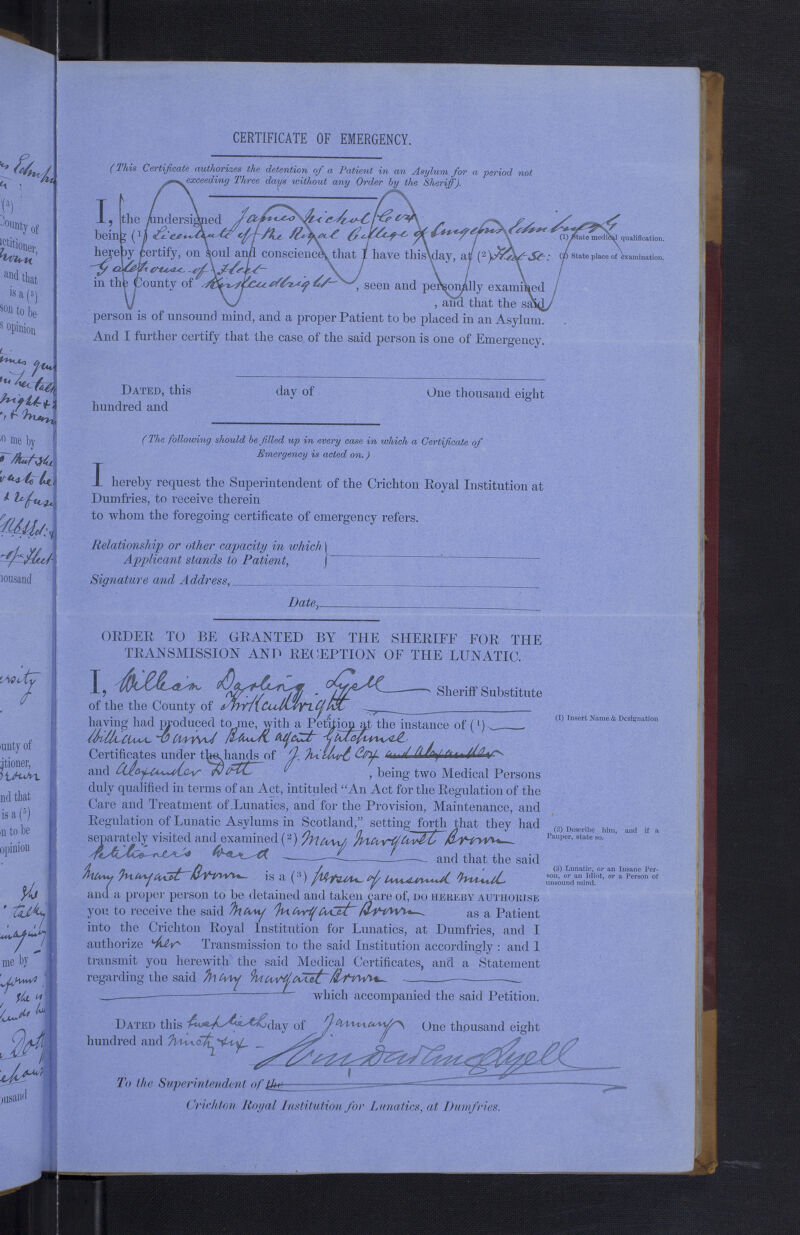 CERTIFICATE OF EMERGENCY.
(This Certificate authorizes the detention of a Patient in an Asylum for a period not
exceeding Three days without any Order by the Sheriff).
I, the undersigned James Nichol Cox
being (1) Licentiate of the Royal College of Surgeons Edinburgh
(1) State medical qualification.
hereby certify, on soul and conscience, that I have this day, at (2) Fleet St:
(2) State place of examination.
Gatehouse of Fleet
in the County of Kirkcudbright, seen and personally examined
, and that the said
person is of unsound mind, and a proper Patient to be placed in an Asylum.
And I further certify that the case of the said person is one of Emergency.
DATED, this day of One thousand eight
hundred and
(The following should be filled up in every case in which a Certificate of
Emergency is acted on.)
I hereby request the Superintendent of the Crichton Royal Institution at
Dumfries, to receive therein
to whom the foregoing certificate of emergency refers.
Relationship or other capacity in which
Applicant stands to Patient,
Signature and Address,
Date,
ORDER TO BE GRANTED BY THE SHERIFF FOR THE
TRANSMISSION AND RECEPTION OF THE LUNATIC.
I, William Darling Lyell Sheriff Substitute
of the the County of Kirkcudbright
having had produced to me, with a Petition at the instance of (1)
(1) Insert Name & Designation
William Cairns Bank agent Gatehouse
Certificates under the hands of J. Nichol Cox and Alexander
and Alexander Dott, being two Medical Persons
duly qualified in terms of an Act, intituled "An Act for the Regulation of the
Care and Treatment of Lunatics, and for the Provision, Maintenance, and
Regulation of Lunatic Asylums in Scotland," setting forth that they had
separately visited and examined (2) Mary Margaret Brown
(2) Describe him, and if a
Pauper, state so.
Petitioner's Ward and that the said
Mary Margaret Brown is a (3) person of unsound mind
(3) Lunatic, or an Insane Per-
son, or an Idiot, or a Person of
unsound mind.
and a proper person to be detained and taken care of, DO HEREBY AUTHORISE
you to receive the said Mary Margaret Brown as a Patient
into the Crichton Royal Institution for Lunatics, at Dumfries, and I
authorize her Transmission to the said Institution accordingly : and I
transmit you herewith the said Medical Certificates, and a Statement
regarding the said Mary Margaret Brown
which accompanied the said Petition.
DATED this twentieth day of January One thousand eight
hundred and ninety six
Wm Darling Lyell
To the Superintendent of the
Crichton Royal Institution for Lunatics, at Dumfries.